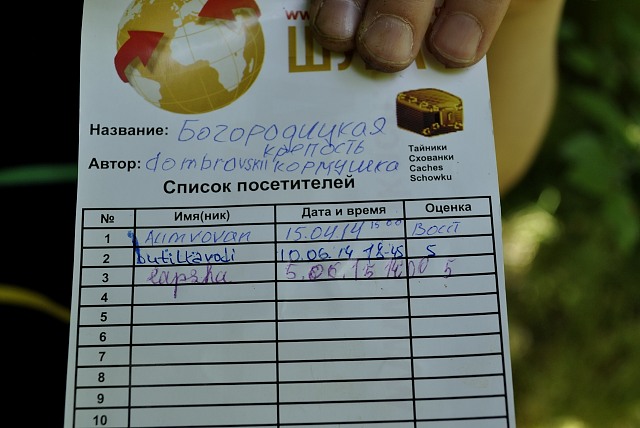 www
ШУ
Тайники
Схованки
Caches
Schowku
Название: Богородицкая
крепость
Автор: dombrovskii кормушка
Список посетителей
№ Имя(ник) Дата и время Оценка
1 15.04.14 15:00
2 butilkavodi 10.06.14 18-45 5
3 lapsha 5.06.15 14:00 5
4
5
6
7
8
9
10